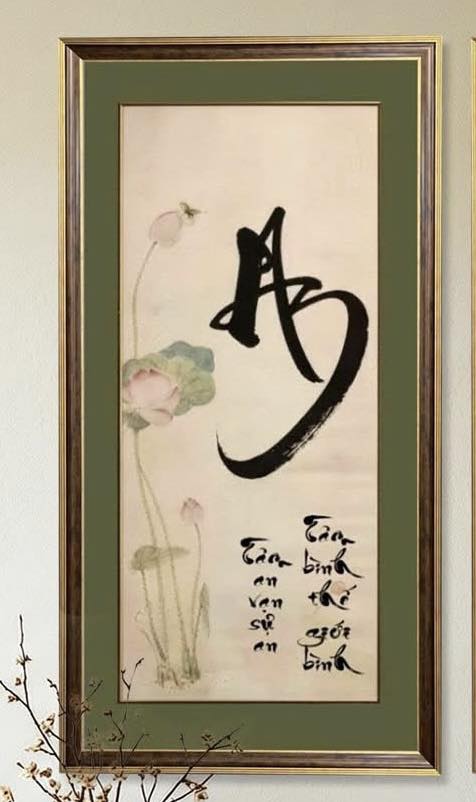 Tâm
bình
thế
giới
bình
Tâm
an
vạn
sự
an